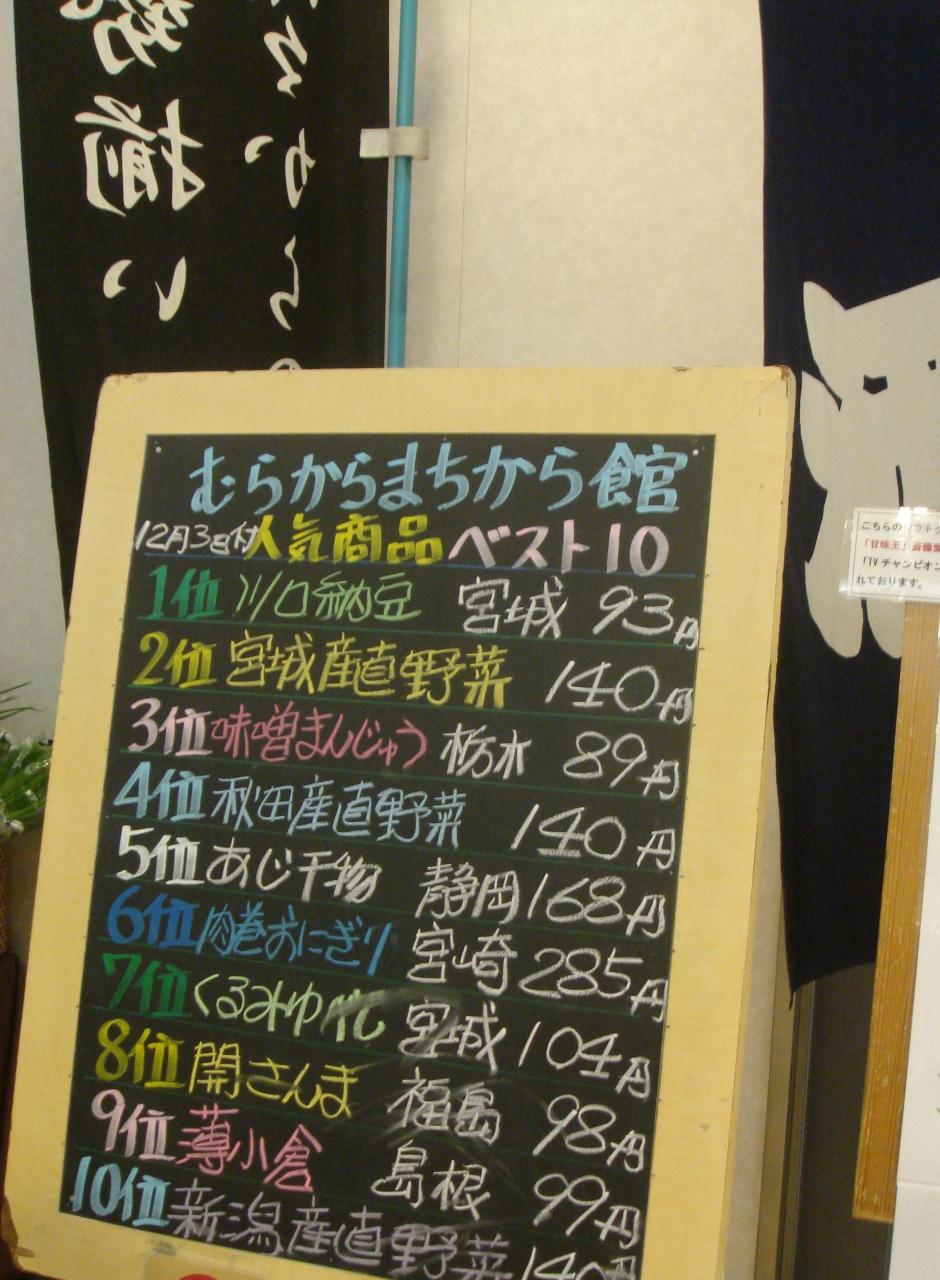 らからの
務揃い
むらからまちから館
12月3日付人気商品ベスト10
1位 川口納豆 宮城 93円
2位 宮城産直野菜 140円
3位 味噌まんじゅう 栃木 89円
4位 秋田産直野菜 140円
5位 あじ干物 静岡 168円
6位 肉巻おにぎり 宮崎 285円
7位 くるみゆべし 宮城 104円
8位 開さんま 福島 98円
9位 薄小倉 島根 99円
10位 新潟産直野菜 140円
こちらのソフトク
「甘味王」斎藤
「TVチャンピオン
れております。